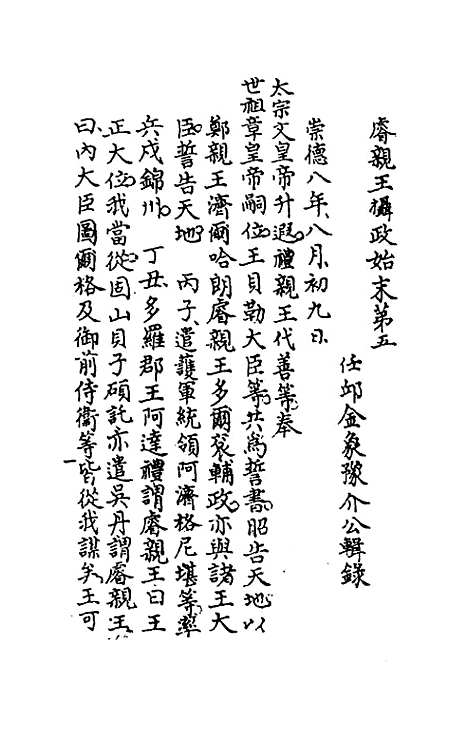 睿親王攝政始末第五
任邱金象豫介公輯錄
崇德八年八月初九日
太宗文皇帝升遐禮親王代善等奉
世祖章皇帝嗣位王貝勒大臣等共為誓書昭告天地以
鄭親王濟爾哈朗睿親王多爾袞輔政亦與諸王大
臣誓告天地　丙子遣護軍統領阿濟格尼堪等率
兵戍錦州　丁丑多羅郡王阿達禮謂睿親王曰王
正大位我當從固山貝子碩託亦遣吳丹謂睿親王
曰內大臣圖爾格及御前侍衛等皆從我謀矣王可